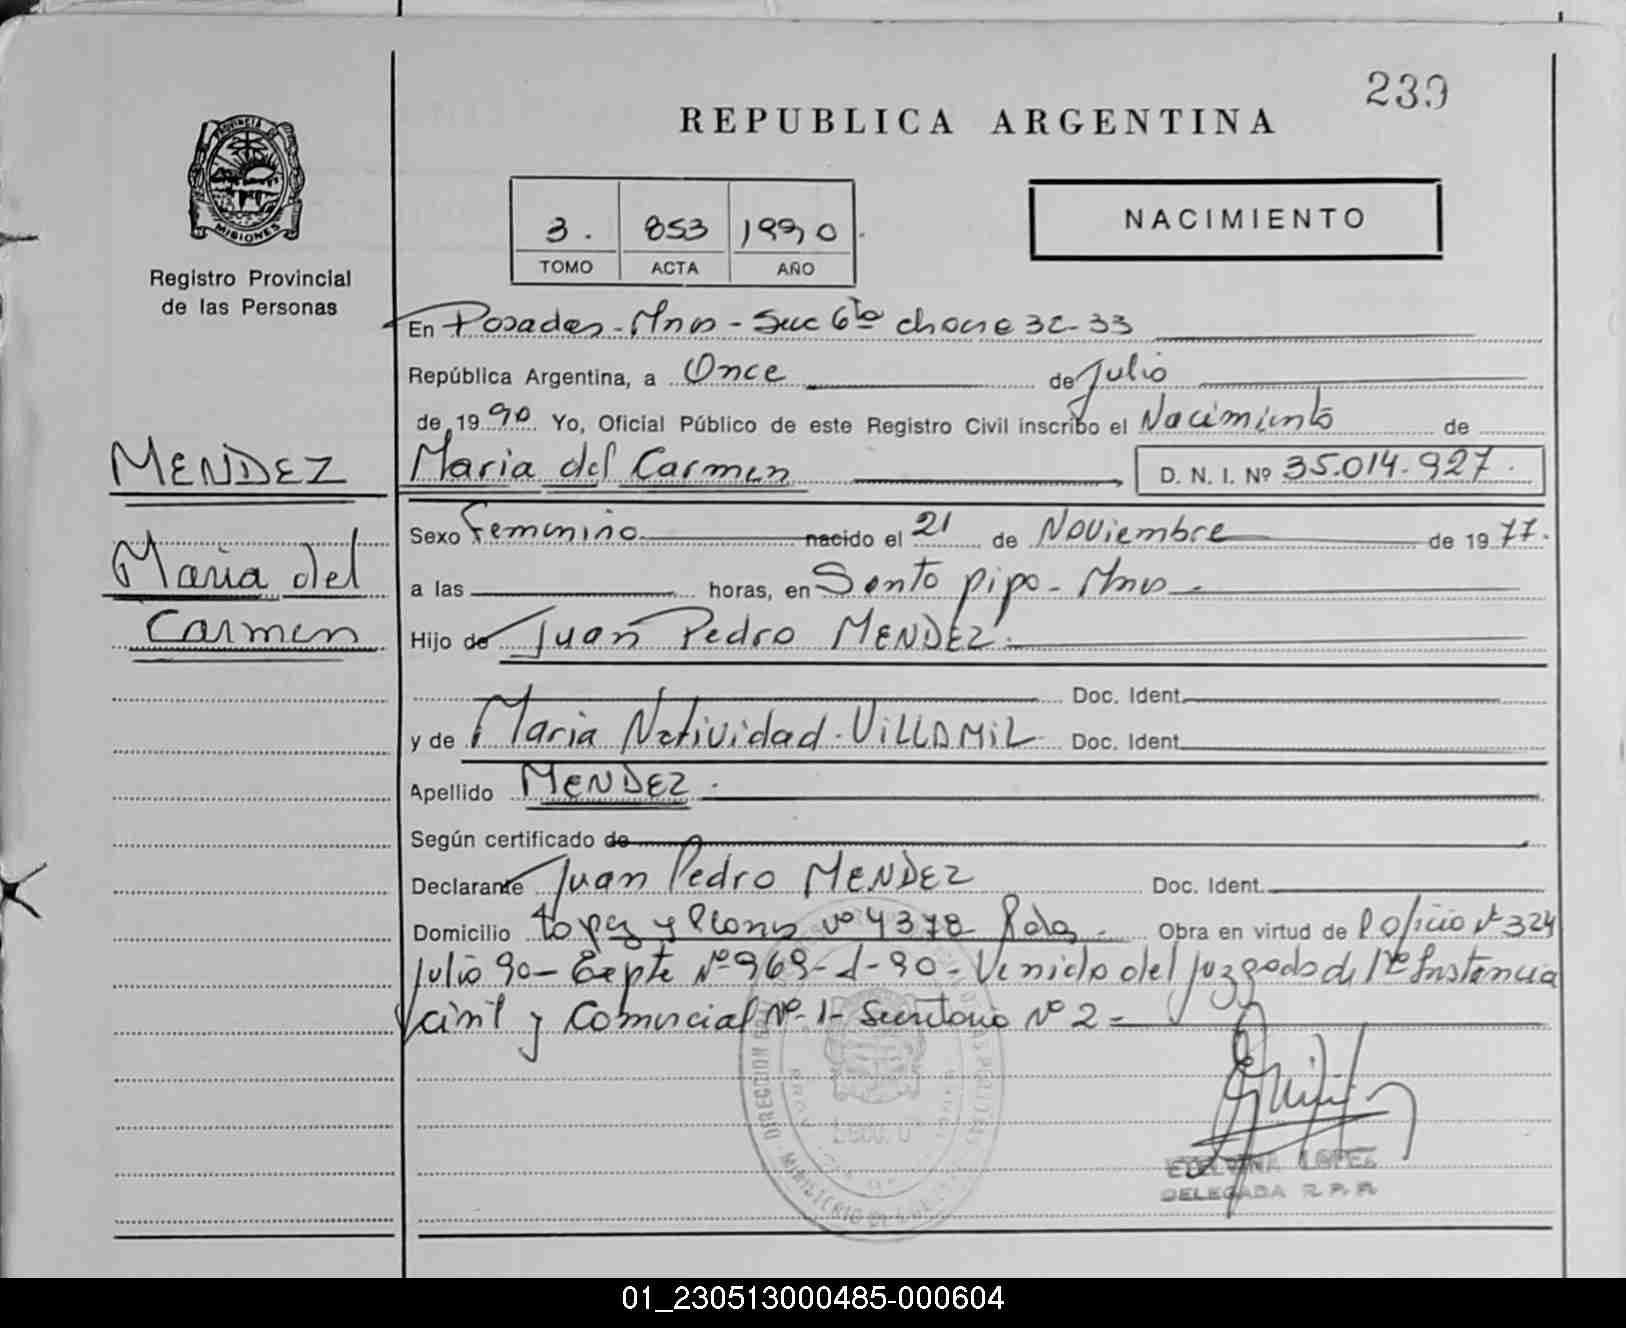 239
REPUBLICA ARGENTINA
PROVINCIA DE
MISIONES
Registro Provincial
de las Personas
3. 853 1990
TOMO ACTA AÑO
NACIMIENTO
En Posadas - Mnes - Secc 6ta chacra 32-33
República Argentina, a Once de Julio
de 1990 Yo, Oficial Público de este Registro Civil inscribo el Nacimiento de
MENDEZ
Maria del Carmen D. N. I. Nº 35.014.927.
Maria del
Carmen
Sexo Femenino nacido el 21 de Noviembre de 1977.
a las horas, en Santo pipo - Mnes
Hijo de Juan Pedro MENDEZ.
Doc. Ident.
y de Maria Natividad VILLAMIL Doc. Ident.
Apellido MENDEZ.
Según certificado de
Declarante Juan Pedro MENDEZ Doc. Ident.
Domicilio Lopez y Planes Nº 4378 Pdas. Obra en virtud de Oficio Nº 324
Julio 90 - Expte Nº 969-1-90 - Venido del juzgado de 1ra Instancia
civil y Comercial Nº 1 - Secretaria Nº 2 =
DIRECCION
MINISTERIO DE
ETELVINA LOPEZ
DELEGADA R. P. P.
01_230513000485-000604